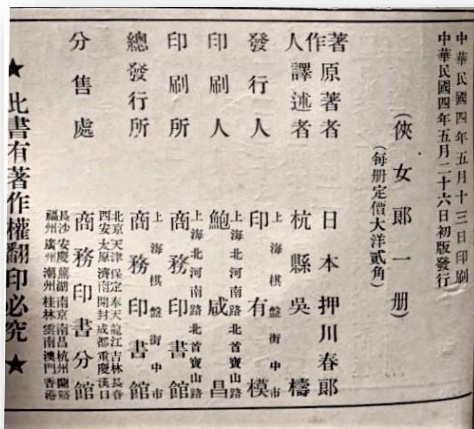 中華民國四年五月十三日印刷
中華民國四年五月二十六日初版發行
(俠女郎一册)
(每册定價大洋貳角)
著作人
原著者 日本押川春郎
譯述者 杭縣吳檮
發行人 上海棋盤街中市 印有模
印刷人 上海北河南路北首寶山路 鮑咸昌
印刷所 上海北河南路北首寶山路 商務印書館
總發行所 上海棋盤街中市 商務印書館
分售處 北京天津保定奉天龍江吉林長春
西安太原濟南開封成都重慶漢口
商務印書分館
長沙安慶蕪湖南京南昌杭州蘭谿
福州廣州潮州桂林雲南澳門香港
★此書有著作權翻印必究★